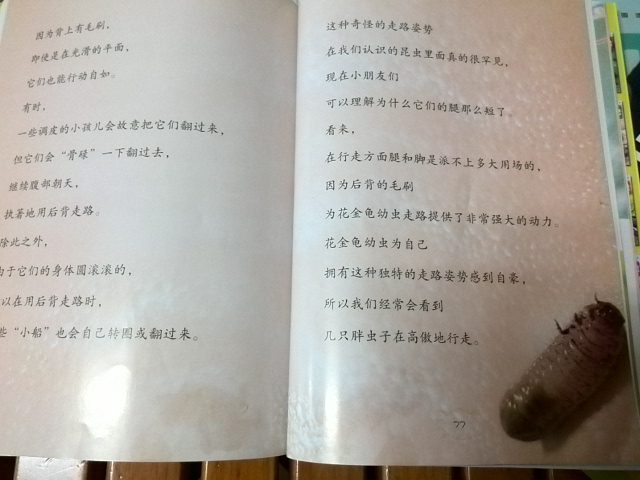 因为背上有毛刷，
即使是在光滑的平面，
它们也能行动自如。
有时，
一些调皮的小孩儿会故意把它们翻过来，
但它们会“骨碌”一下翻过去，
继续腹部朝天，
执著地用后背走路。
除此之外，
由于它们的身体圆滚滚的，
以在用后背走路时，
些“小船”也会自己转圈或翻过来。
这种奇怪的走路姿势
在我们认识的昆虫里面真的很罕见，
现在小朋友们
可以理解为什么它们的腿那么短了。
看来，
在行走方面腿和脚是派不上多大用场的，
因为后背的毛刷
为花金龟幼虫走路提供了非常强大的动力。
花金龟幼虫为自己
拥有这种独特的走路姿势感到自豪，
所以我们经常会看到
几只胖虫子在高傲地行走。
77